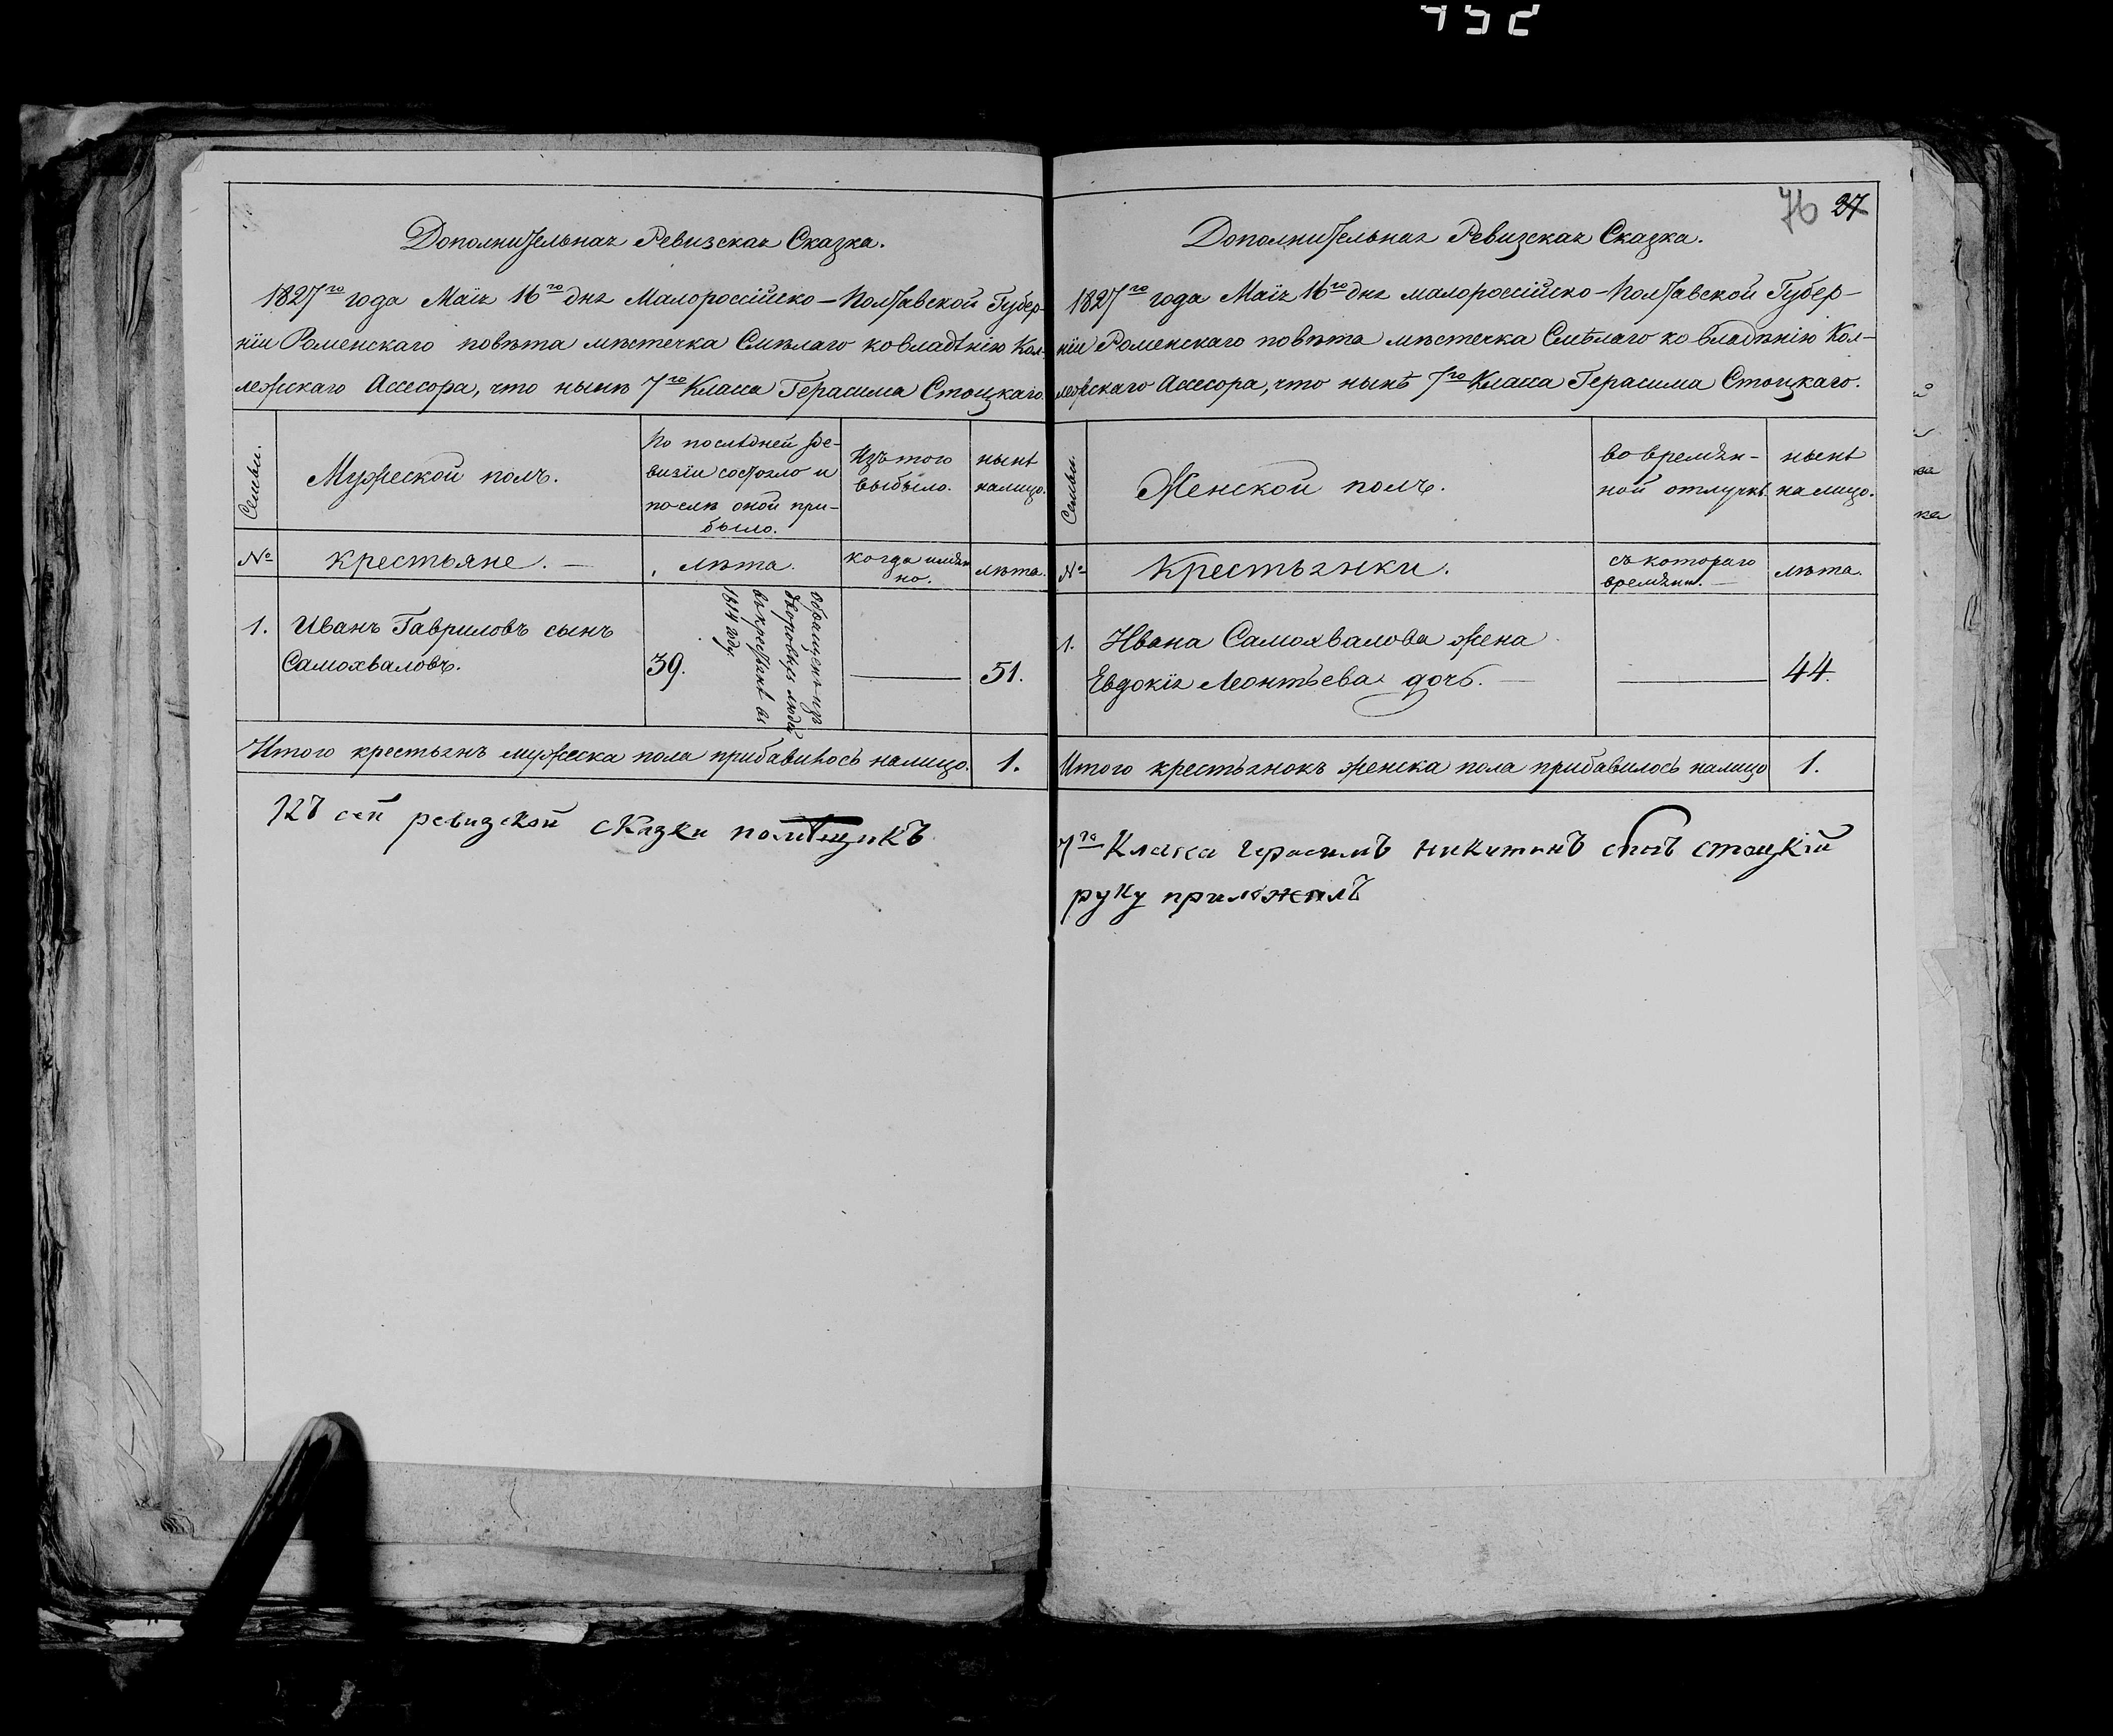 452
Дополнительная Ревизская Сказка.
1827го года Маія 16го дня Малороссійско-Полтавской Губер-
ніи Роменскаго повѣта мѣстечка Смѣлаго ко владѣнію Кол-
лежскаго Ассесора, что нынѣ 7го Класса Герасима Стоцкаго.
Семьи.
Мужеской полъ.
По послѣдней ре-
визіи состояло и
послѣ оной при-
было.
Изъ того
выбыло.
нынѣ
налицо.
№
крестьяне.
лѣта.
когда имян
но.
лѣта.
1.
Иванъ Гавриловъ сынъ
Самохваловъ.
39.
обращенъ изъ
дворовыхъ людей
въ крестьянѣ въ
1814 году.
51.
Итого крестьянъ мужеска пола прибавилось налицо.
1.
Къ сей ревизской сказки помѣщикъ
76 27
Дополнительная Ревизская Сказка.
1827го года Маія 16го дня малороссійско-Полтавской Губер-
ніи Роменскаго повѣта мѣстечка Смѣлаго ко владѣнію Кол-
лежскаго Ассесора, что нынѣ 7го Класса Герасима Стоцкаго.
Семьи.
Женской полъ.
во времян-
ной отлучкѣ.
нынѣ
налицо.
№
Крестьянки.
съ котораго
времяни.
лѣта.
1.
Ивана Самохвалова жена
Евдокія Леонтьева дочь.
44.
Итого крестьянокъ женска пола прибавилось налицо
1.
7го Класса Герасимъ Никитинъ сынъ Стоцкій
руку приложилъ